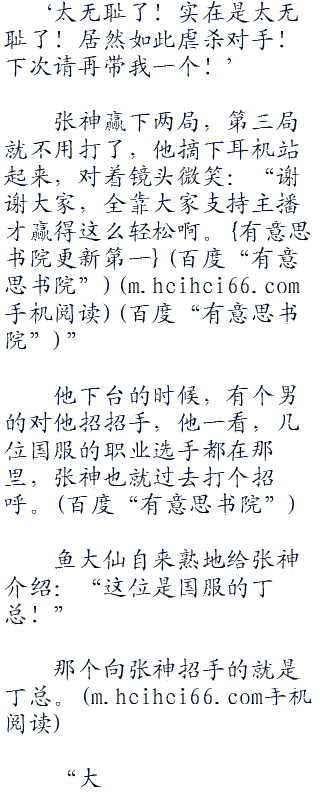 ‘太无耻了！实在是太无
耻了！居然如此虐杀对手！
下次请再带我一个！’
张神赢下两局，第三局
就不用打了，他摘下耳机站
起来，对着镜头微笑：“谢
谢大家，全靠大家支持主播
才赢得这么轻松啊。{有意思
书院更新第一}(百度“有意
思书院”)(m.hcihci66.com
手机阅读)(百度“有意思书
院”)”
他下台的时候，有个男
的对他招招手，他一看，几
位国服的职业选手都在那
里，张神也就过去打个招
呼。(百度“有意思书院”)
鱼大仙自来熟地给张神
介绍：“这位是国服的丁
总！”
那个向张神招手的就是
丁总。(m.hcihci66.com手机
阅读)
“大